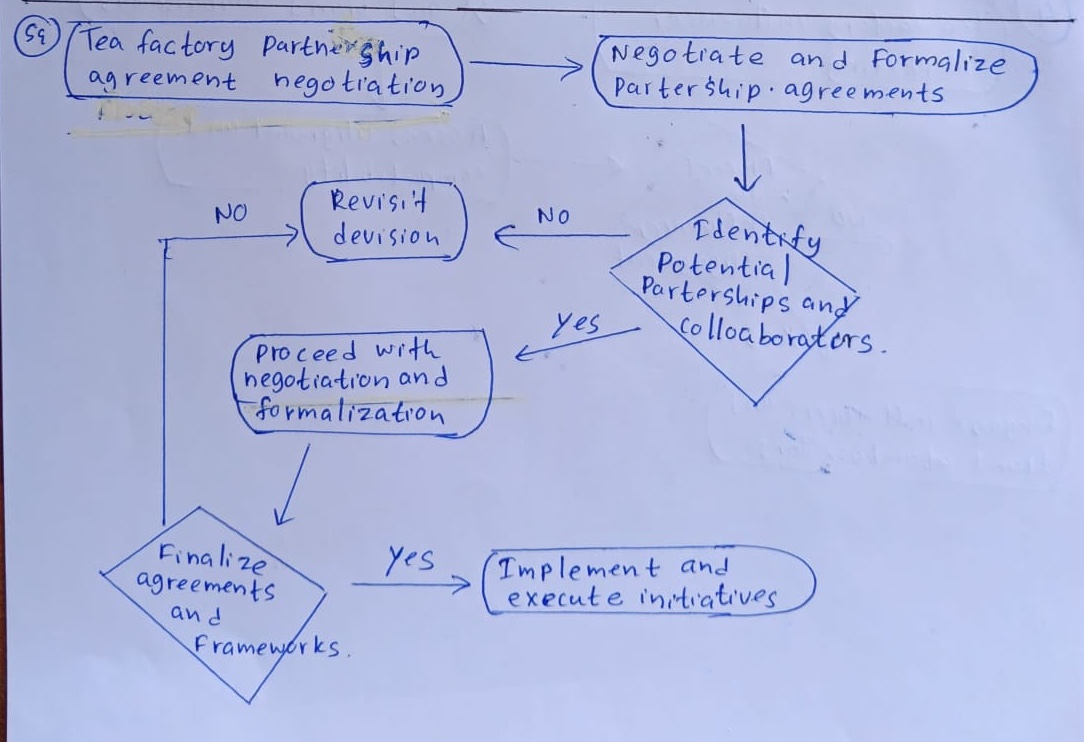 59
Tea factory partnership
agreement negotiation
Negotiate and Formalize
Partership. agreements
NO
Revisit
devision
NO
Identify
Potential
Parterships and
colloaboraters.
Yes
Proceed with
negotiation and
formalization
Finalize
agreements
and
Frameworks.
Yes
Implement and
execute initiatives